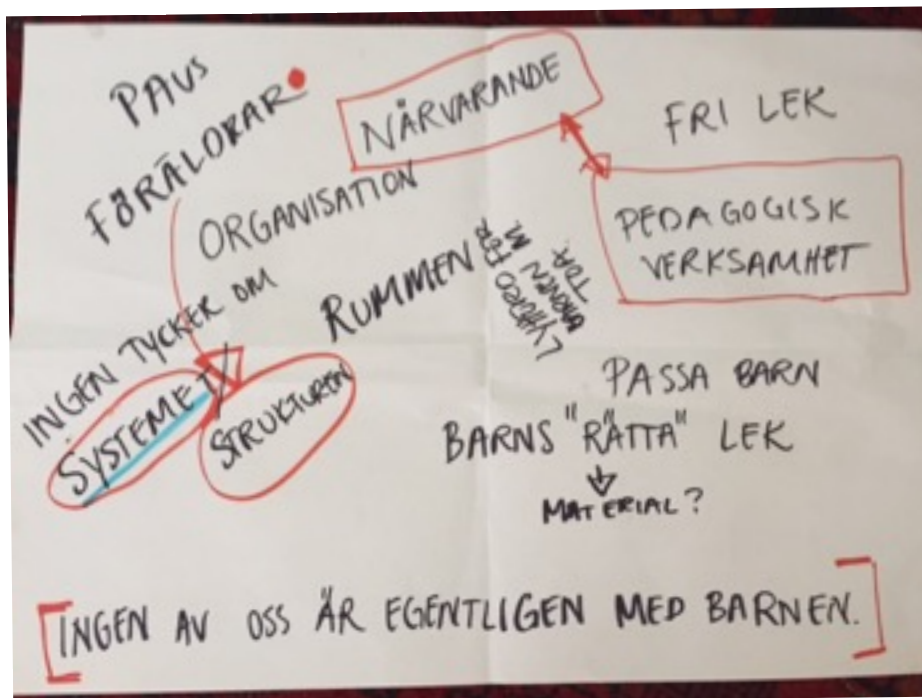 PAUS
FÖRÄLDRAR
NÄRVARANDE
FRI LEK
ORGANISATION
PEDAGOGISK
VERKSAMHET
RUMMEN
BARNEN M.
INGEN TYCKER OM
SYSTEMET/
STRUKTUREN
PASSA BARN
BARNS "RÄTTA" LEK
MATERIAL?
[INGEN AV OSS ÄR EGENTLIGEN MED BARNEN.]